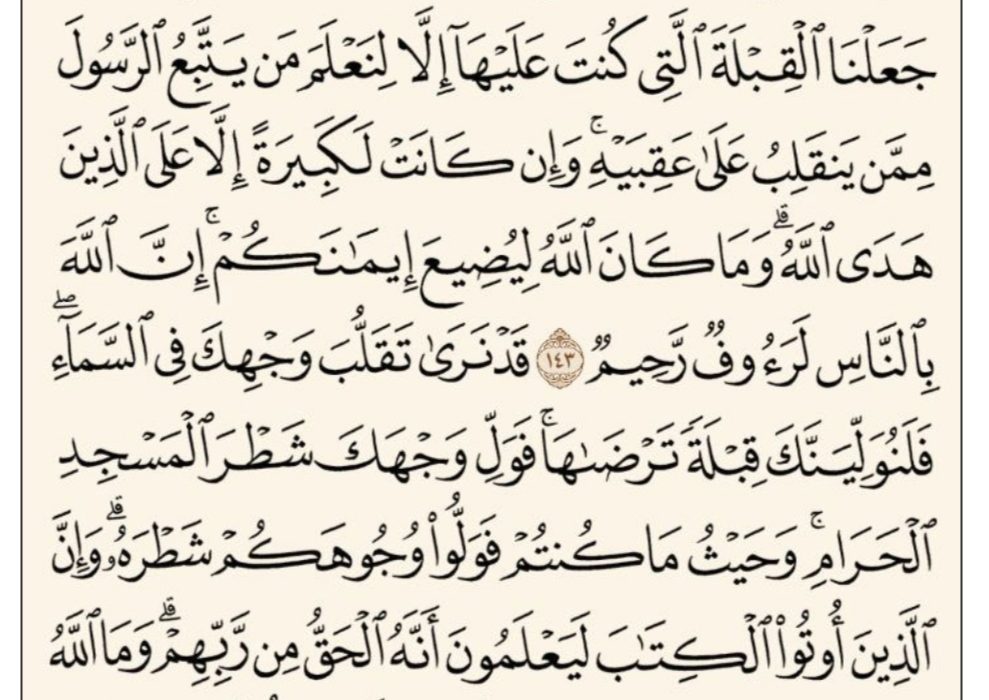 جَعَلْنَا ٱلْقِبْلَةَ ٱلَّتِى كُنتَ عَلَيْهَآ إِلَّا لِنَعْلَمَ مَن يَتَّبِعُ ٱلرَّسُولَ
مِمَّن يَنقَلِبُ عَلَىٰ عَقِبَيْهِ ۚ وَإِن كَانَتْ لَكَبِيرَةً إِلَّا عَلَى ٱلَّذِينَ
هَدَى ٱللَّهُ ۗ وَمَا كَانَ ٱللَّهُ لِيُضِيعَ إِيمَـٰنَكُمْ ۚ إِنَّ ٱللَّهَ
بِٱلنَّاسِ لَرَءُوفٌ رَّحِيمٌ ١٤٣ قَدْ نَرَىٰ تَقَلُّبَ وَجْهِكَ فِى ٱلسَّمَآءِ ۖ
فَلَنُوَلِّيَنَّكَ قِبْلَةً تَرْضَىٰهَا ۚ فَوَلِّ وَجْهَكَ شَطْرَ ٱلْمَسْجِدِ
ٱلْحَرَامِ ۚ وَحَيْثُ مَا كُنتُمْ فَوَلُّوا۟ وُجُوهَكُمْ شَطْرَهُۥ ۗ وَإِنَّ
ٱلَّذِينَ أُوتُوا۟ ٱلْكِتَـٰبَ لَيَعْلَمُونَ أَنَّهُ ٱلْحَقُّ مِن رَّبِّهِمْ ۗ وَمَا ٱللَّهُ